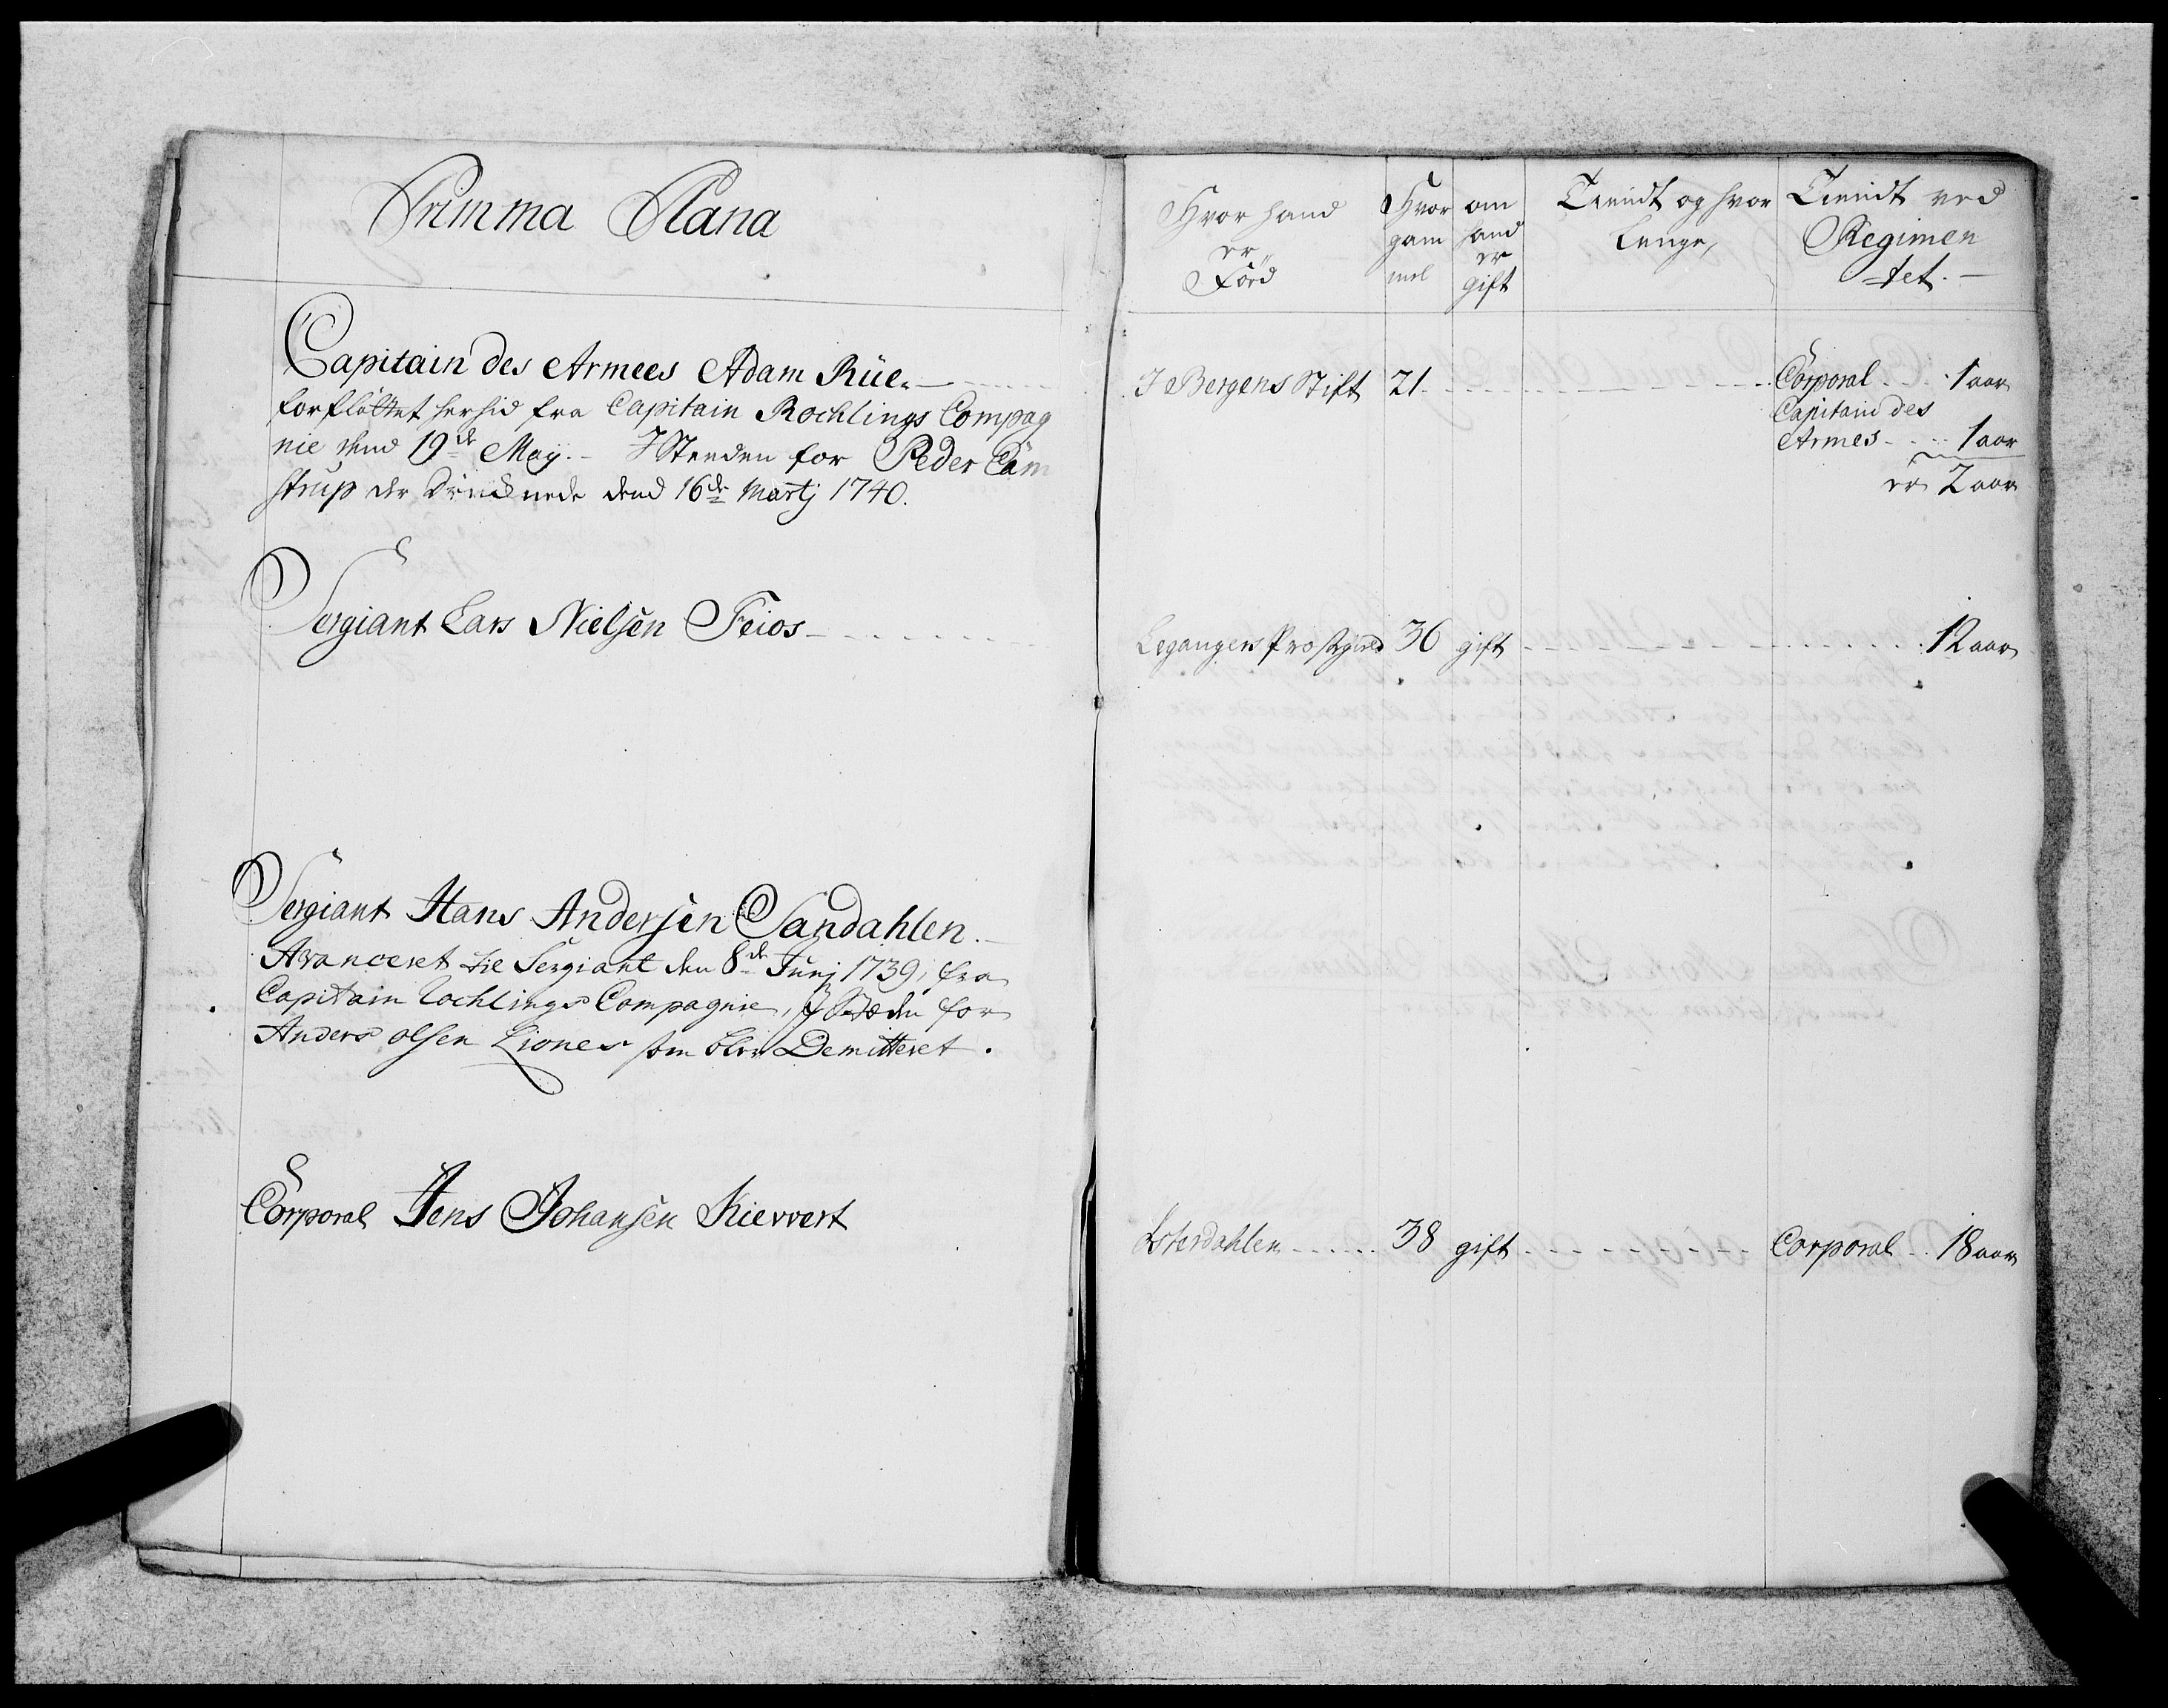 Primma Plana
Capitain des Armees Adam Rüe.
forfløttet herhid fra Capitain Rochlings Compag
nie dend 19de Maij. I Steeden for Peder Cam
strup der Drucknede dend 16de Martj 1740.
Sergiant Lars Nielsen Feios
Sergiant Hans Andersen Sandahlen.
Avanceret til Sergiant den 8de Junj 1739, fra
Capitain Rochlings Compagnie, I Steden for
Anders olsen Liones som blev Demitteret.
Corporal Jens Johansen Kievvert
Hvor hand
er
Förd
Hvor
gam
mel
om
hand
er
gift
Tient og hvor
Lenge,
Tient ved
Regimen
tet.
I Bergens Stift 21. Corporal 1 aar
Capitain des
Armes 1 aar
er 2 aar
Legangers Prostgield 36 gift 12 aar
Østerdahlen 38 gift Corporal 18 aar